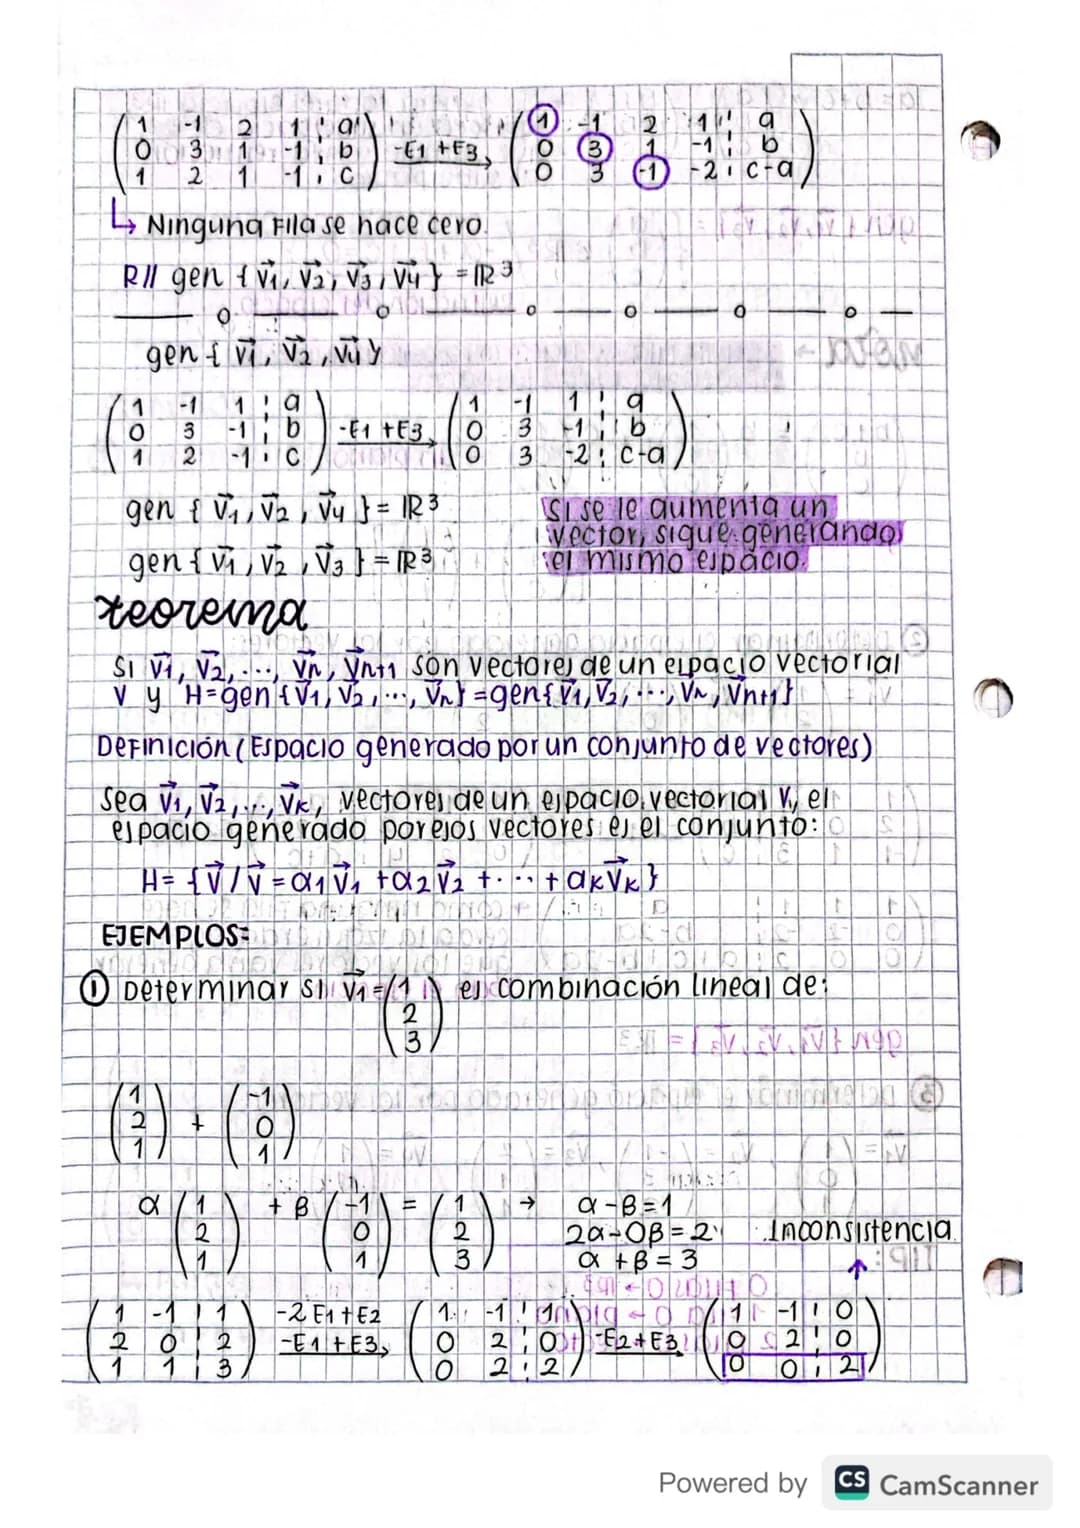 ( 1 -1 2 1 ¦ a ) ( 1 -1 2 1 ¦ a )
( 0 3 1 -1 ¦ b ) -E1 +E3 ( 0 3 1 -1 ¦ b )
( 1 2 1 -1 ¦ c ) ( 0 3 -1 -2 ¦ c-a )
↳ Ninguna Fila se hace cero.
R// gen { v⃗1, v⃗2, v⃗3, v⃗4 } = ℝ3
gen { v⃗1, v⃗2, v⃗4 }
( 1 -1 1 ¦ a ) ( 1 -1 1 ¦ a )
( 0 3 -1 ¦ b ) -E1 +E3 ( 0 3 -1 ¦ b )
( 1 2 -1 ¦ c ) ( 0 3 -2 ¦ c-a )
gen { v⃗1, v⃗2, v⃗4 } = ℝ3
gen { v⃗1, v⃗2, v⃗3 } = ℝ3
Si se le aumenta un
vector, sigue generando
el mismo espacio.
teorema
Si v⃗1, v⃗2, ..., v⃗n, v⃗n+1 son vectores de un espacio vectorial
V y H=gen {v⃗1, v⃗2, ..., v⃗n} = gen{v⃗1, v⃗2, ..., v⃗n, v⃗n+1}
Definición (Espacio generado por un conjunto de vectores)
Sea v⃗1, v⃗2, ..., v⃗k, vectores de un espacio vectorial V, el
espacio generado por esos vectores es el conjunto:
H= {v⃗ / v⃗ = α1 v⃗1 + α2 v⃗2 + ... + αk v⃗k}
EJEMPLOS:
① Determinar si v⃗1 = ( 1 ) es combinación lineal de:
( 2 )
( 3 )
( 1 ) ( -1 )
( 2 ) + ( 0 )
( 1 ) ( 1 )
α ( 1 ) + β ( -1 ) = ( 1 ) → α - β = 1
( 2 ) ( 0 ) ( 2 ) 2α - 0β = 2 Inconsistencia
( 1 ) ( 1 ) ( 3 ) α + β = 3 ↑
( 1 -1 ¦ 1 ) -2E1+E2 ( 1 -1 ¦ 1 ) ( 1 -1 ¦ 0 )
( 2 0 ¦ 2 ) -E1+E3 ( 0 2 ¦ 0 ) -E2+E3 ( 0 2 ¦ 0 )
( 1 1 ¦ 3 ) ( 0 2 ¦ 2 ) ( 0 0 ¦ 2 )
Powered by CS CamScanner